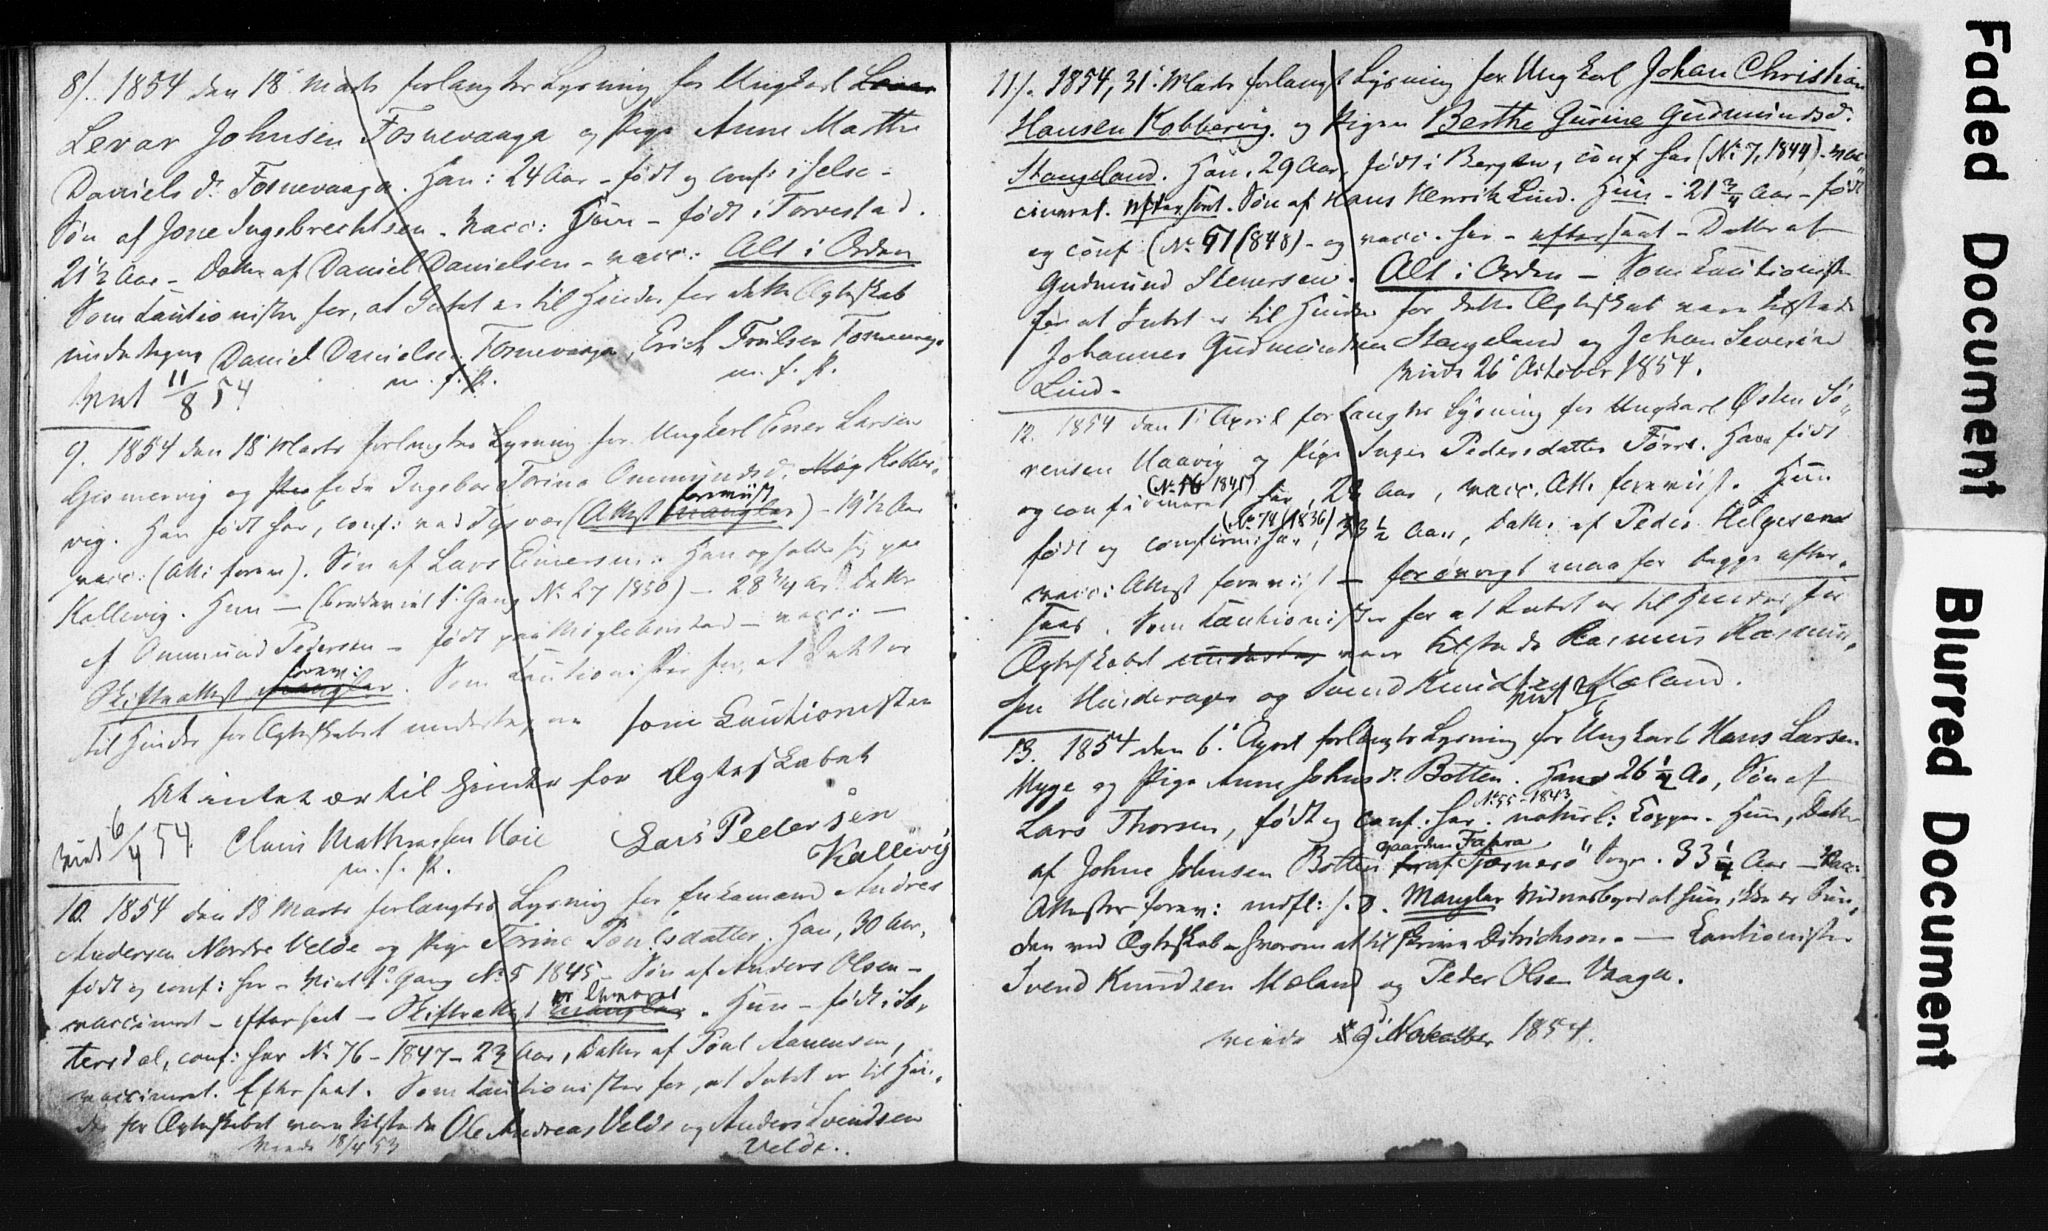 8/. 1854 den 18 Marts forlangtes Lysning for Ungkarl
Levar Johnsen Fosnevaaga og Pige Anne Marthe
Daniels d. Fosnevaaga. Han: 24 Aar - født og conf: i Jelse -
Søn af Jone Ingebrechtsen - vacc: Hun - født i Torvestad.
21½ Aar - Datter af Daniel Danielsen - vacc: Alt i Orden
Som Cautionister for, at Intet er til Hinder for dette Ægteskab
undertegne Daniel Danielsen Fosnevaaga, Erich Fosnevaage
m. f. P. m. f. P.
Viet 11/8 54
9. 1854 den 18 Marts forlangtes Lysning for Ungkarl Einer Larsen
og Enke Ingebor Torine Ommundsd.
vig. Han født her, conf: ved Tysvær (Attest forevist mangler) - 19½ Aar
vacc: (Att: forev). Søn af Lars Einersen. Han opholder sig paa
Kallevig. Hun - 1ste Gang No 27 1850) - 28 3/4 Aar Datter
af Ommund Pedersen - født paa - vacc: -
Skifteattest forev: mangler. Som Cautionister for, at Intet er
til Hinder for Ægteskabet undertegne som Cautionisten
At intet er til Hinder for Ægteskabet
Viet 6/4 54. Claus Mathiassen Lars Pedersen
m. f. P. Kallevig
10. 1854 den 18 Marts forlangtes Lysning for Enkemand Andres
Andersen Nordre Velde og Pige Torine Poulsdatter. Han, 30 Aar,
født og conf: her - viet 1ste Gang No 5 1845 - Søn af Anders Olsen -
vaccineret - efterseet - Skifteattest er leveret mangler. Hun - født i Sæ-
tersdal, conf: her No 76 - 1847 - 23 Aar, Datter af Poul Aanensen,
vaccineret. Efterseet. Som Cautionister for, at Intet er til Hin-
der for Ægteskabet vare tilstede Ole Andreas Velde og Anders Svendsen
Viede 18/4 53 Velde..
11/. 1854, 31. Marts forlangt Lysning for Ungkarl Johan Christian
Hansen Kobbervig. og Pigen Berthe Gurine Gudmundsd.
Stangeland. Han, 29 Aar, født i Bergen, conf her (No 7, 1844) - vac-
cineret. Efterseet. Søn af Hans Henrik Lind. Hun - 21 3/4 Aar - født
og conf (No 51 1848) - og vacc. her - efterseet - Datter af
Gudmund Stenersen. Alt i Orden - Som Cautionister
for at Intet er til Hinder for dette Ægteskab vare tilstede
Johannes Gudmundsen Stangeland og Johan Severin
Lind - Viede 26 October 1854.
12. 1854 den 1. April forlangtes Lysning for Ungkarl Østen Sø-
rensen Haavig og Pige Inger Pedersdatter Førre. Han født
og confirmeret (No 16 1841) her, 28 Aar, vacc. Att. foreviist. Hun
født og confirm: her (No 74 1836), 33½ Aar, Datter af Peder Helgesen
vacc: Attest foreviist - forøvrigt maa for begge efter-
sees. Som Cautionister for at Intet er til Hinder for
Ægteskabet vare tilstede Rasmus Rasmus-
sen og Svend Knudsen Mæland.
13. 1854 den 6. April forlangtes Lysning for Ungkarl Hans Larsen
Myge og Pige Anne Johnsd. Botten. Han 26¼ Aar, Søn af
Lars Thorsen, født og conf. her. No 55 - 1843 naturl: Kopper. Hun, Datter
af Johne Johnsen Botten gaarden Fahra Tjærnerø Sogn. 33¼ Aar - vacc:
Attester forev: Mangler Vidnesbyrd at hun ikke er bun-
den ved Ægteskab - hvorom at tilskrive Ditrichson. - Cautionister
Svend Knudsen Mæland og Peder Olsen Vaaga.
viede 9 November 1854.
Faded Document
Blurred Document